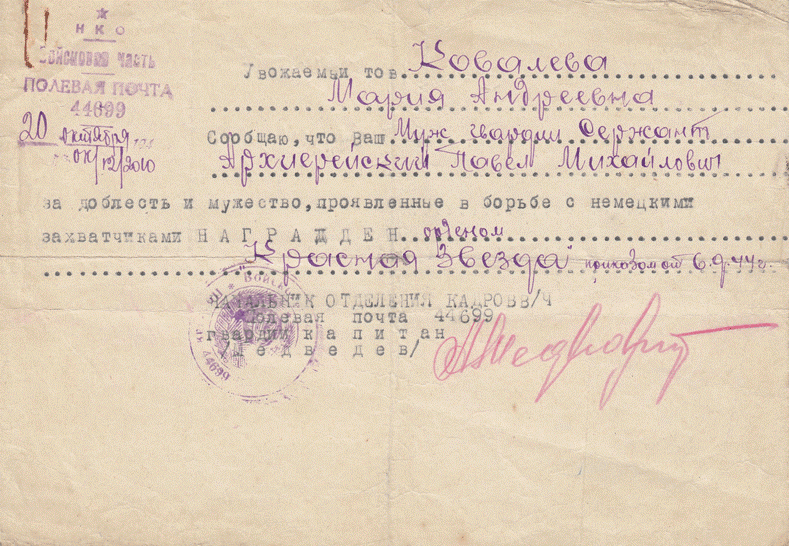 НКО
Войсковая часть
ПОЛЕВАЯ ПОЧТА
44699
20 октября
ок/12/2010
Уважаемый тов. Ковалева
Мария Андреевна
Сообщаю, что Ваш Муж гвардии Сержант
Архиерейский Павел Михайлович
за доблесть и мужество, проявленные в борьбе с немецкими
захватчиками НАГРАЖДЕН орденом
Красная Звезда приказом от 6.9.44г.
НАЧАЛЬНИК ОТДЕЛЕНИЯ КАДРОВ В/Ч
Полевая почта 44699
гвардии капитан
/Медведев/
44699